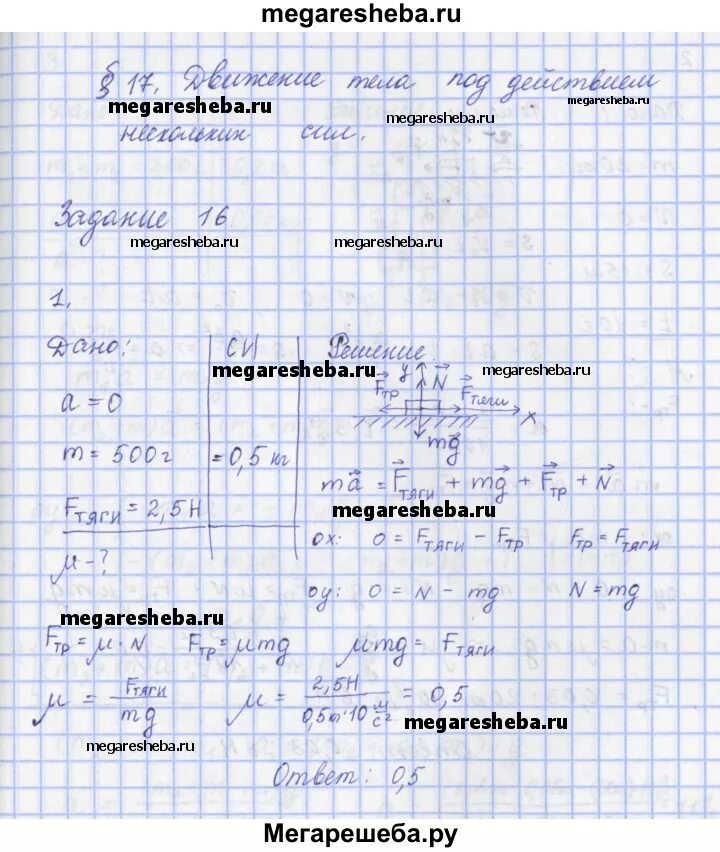 megaresheba.ru
§ 17. Движение тела под действием
megaresheba.ru megaresheba.ru megaresheba.ru
нескольких сил.
Задание 16
megaresheba.ru megaresheba.ru
1.
Дано: СИ Решение
megaresheba.ru megaresheba.ru
y N Fтр Fтяги x mg
a = 0
m = 500 г = 0,5 кг
ma = Fтяги + mg + Fтр + N
megaresheba.ru
Fтяги = 2,5 Н
ox: 0 = Fтяги - Fтр Fтр = Fтяги
μ - ?
oy: 0 = N - mg N = mg
megaresheba.ru
Fтр = μ · N Fтр = μmg μmg = Fтяги
μ = Fтяги / mg μ = 2,5 Н / 0,5 кг · 10 м/с² = 0,5
megaresheba.ru megaresheba.ru
Ответ: 0,5
Мегарешеба.ру